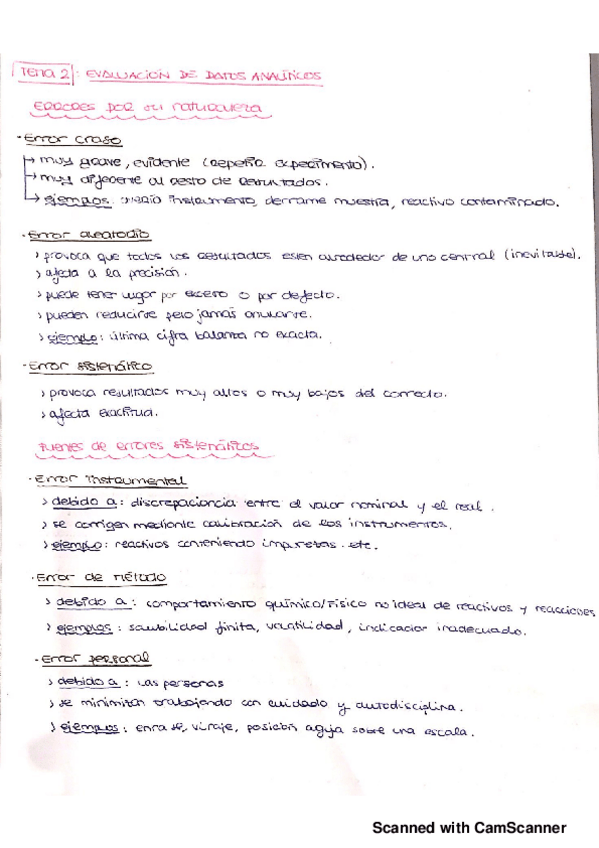 TEMA 2: EVALUACIÓN DE DATOS ANALÍTICOS
ERRORES POR SU NATURALEZA
· Error craso
→ muy grave, evidente (repetir experimento).
→ muy diferente al resto de resultados.
→ ejemplos: instrumento, derrame muestra, reactivo contaminado.
· Error aleatorio
> provoca que todos los resultados estén alrededor de uno central (inevitable).
> afecta a la precisión.
> puede tener lugar por exceso o por defecto.
> pueden reducirse pero jamás anularse.
> ejemplo: última cifra balanza no exacta.
· Error sistemático
> provoca resultados muy altos o muy bajos del correcto.
> afecta exactitud.
Fuentes de errores sistemáticos
· Error instrumental
> debido a: discrepaciencia entre el valor nominal y el real.
> se corrigen mediante calibración de los instrumentos.
> ejemplo: reactivos conteniendo impurezas. etc.
· Error de método
> debido a: comportamiento químico/físico no ideal de reactivos y reacciones
> ejemplos: solubilidad finita, volatilidad, indicador inadecuado.
· Error personal
> debido a: las personas
> se minimizan trabajando con cuidado y autodisciplina.
> ejemplos: enrase, viraje, posición aguja sobre una escala.
Scanned with CamScanner